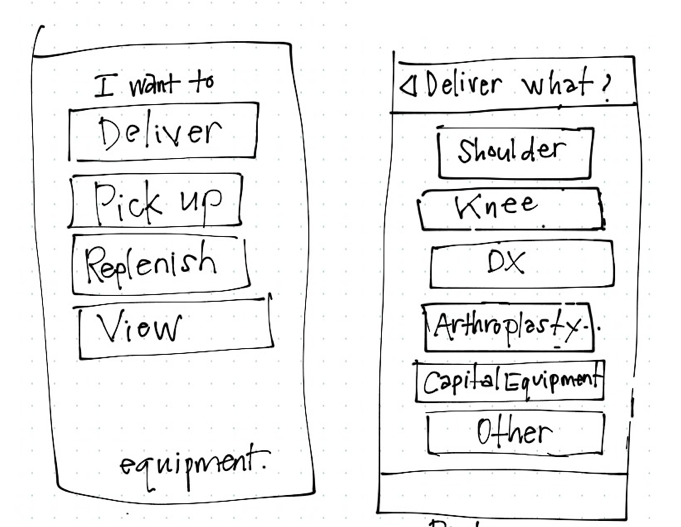 I want to
Deliver
Pick up
Replenish
View
equipment.
◁ Deliver what?
Shoulder
Knee
DX
Arthroplasty
Capital Equipment
Other